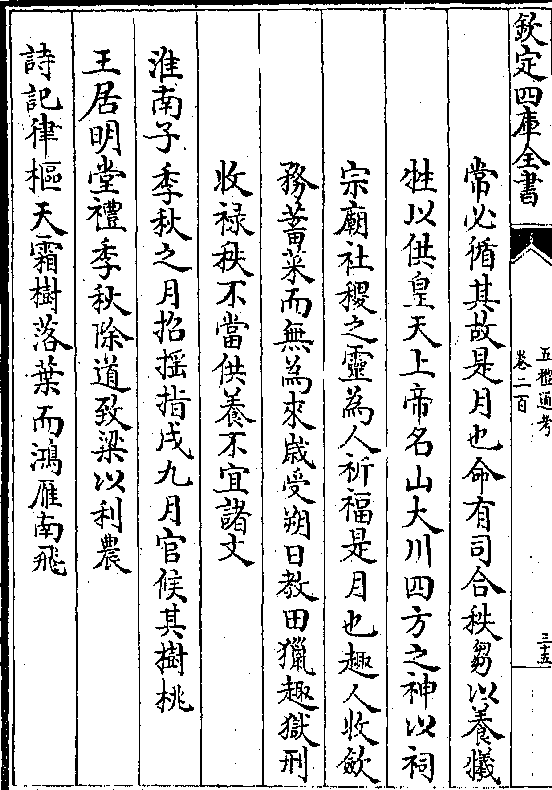 欽定四庫全書
五禮通考
卷二百
三十五
常必循其故是月也命有司合秩芻以養犧
牲以供皇天上帝名山大川四方之神以祠
宗廟社稷之靈為人祈福是月也趣人收斂
務蓄菜而無為來歲受朔日教田獵趣獄刑
收祿秩不當供養不宜諸文
淮南子季秋之月招搖指戌九月官候其樹桃
王居明堂禮季秋除道致梁以利農
詩記律樞天霜樹落葉而鴻雁南飛